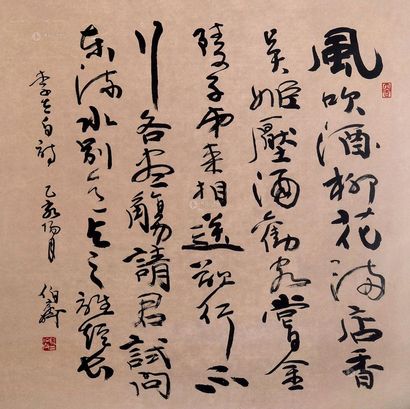 風吹酒柳花满店香
吳姬壓酒勸客嘗金
陵子弟来相送欲行不
行各尽觴請君試問
东流水別意与之谁短长
李太白詩 乙亥阳月 伯